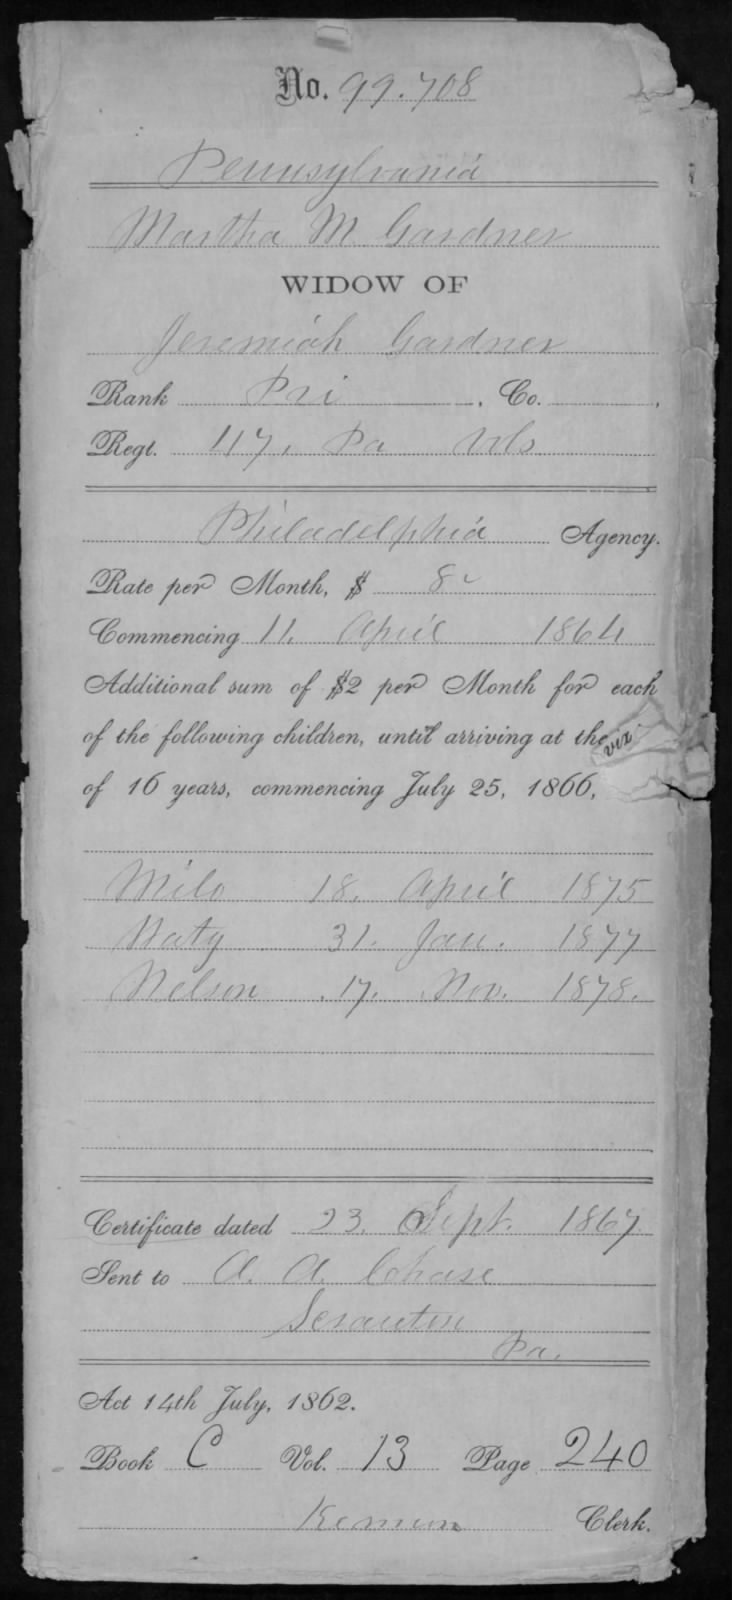 No. 99.708
Pennsylvania
Martha M. Gardner
WIDOW OF
Jeremiah Gardner
Rank Pri . Co. .
Regt. 117. Pa Vols
Philadelphia Agency.
Rate per Month, $ 8
Commencing 11. April 1864
Additional sum of $2 per Month for each
of the following children, until arriving at the
of 16 years, commencing July 25, 1866,
viz
Milo 18. April 1875
Katy 31. Jan. 1877
Nelson 17. Nov. 1878.
Certificate dated 23. Sept. 1867.
Sent to A. A. Chase
Scranton
Pa.
Act 14th July, 1862.
Book C Vol. 13 Page 240
Clerk.